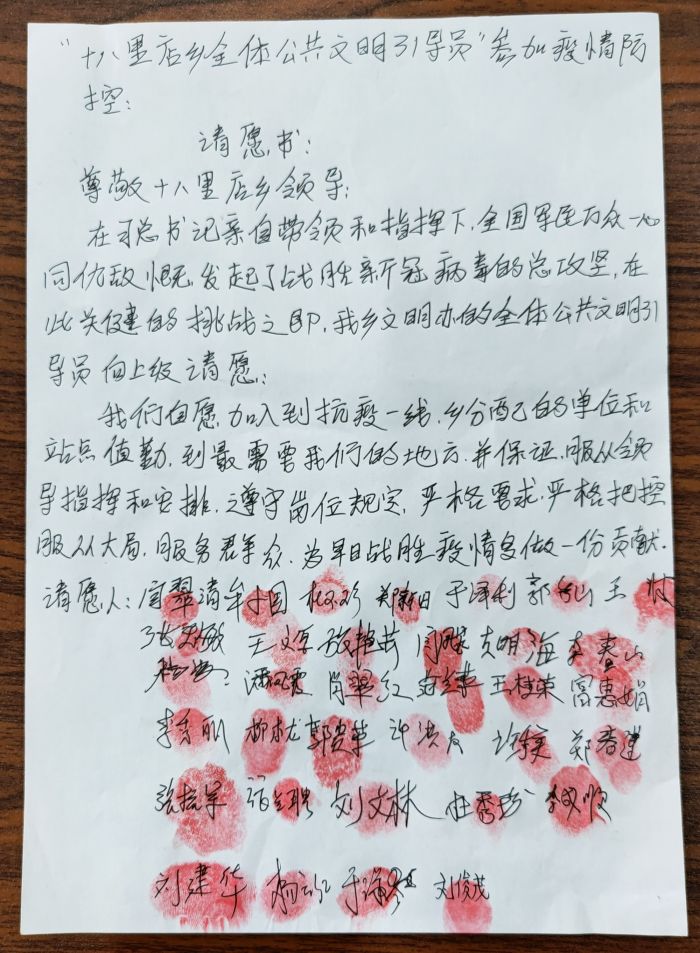 “十八里店乡全体公共文明引导员”参加疫情防
控:
请愿书:
尊敬十八里店乡领导:
在习总书记亲自带领和指挥下,全国军民万众一心
同仇敌慨,发起了战胜新冠病毒的总攻坚,在
此关键的挑战之即,我乡文明办的全体公共文明引
导员向上级请愿:
我们自愿加入到抗疫一线,乡分配的单位和
站点值勤,到最需要我们的地方.并保证,服从领
导指挥和安排,遵守岗位规定,严格要求,严格把控
服从大局,服务群众,为早日战胜疫情多做一份贡献.
请愿人: 于泽利 王
肖翠红 王桂荣 富惠娟
李秀丽 柳林 许洪友 郑春莲
张振军 刘文林 杜秀珍
刘建华 刘俊茂